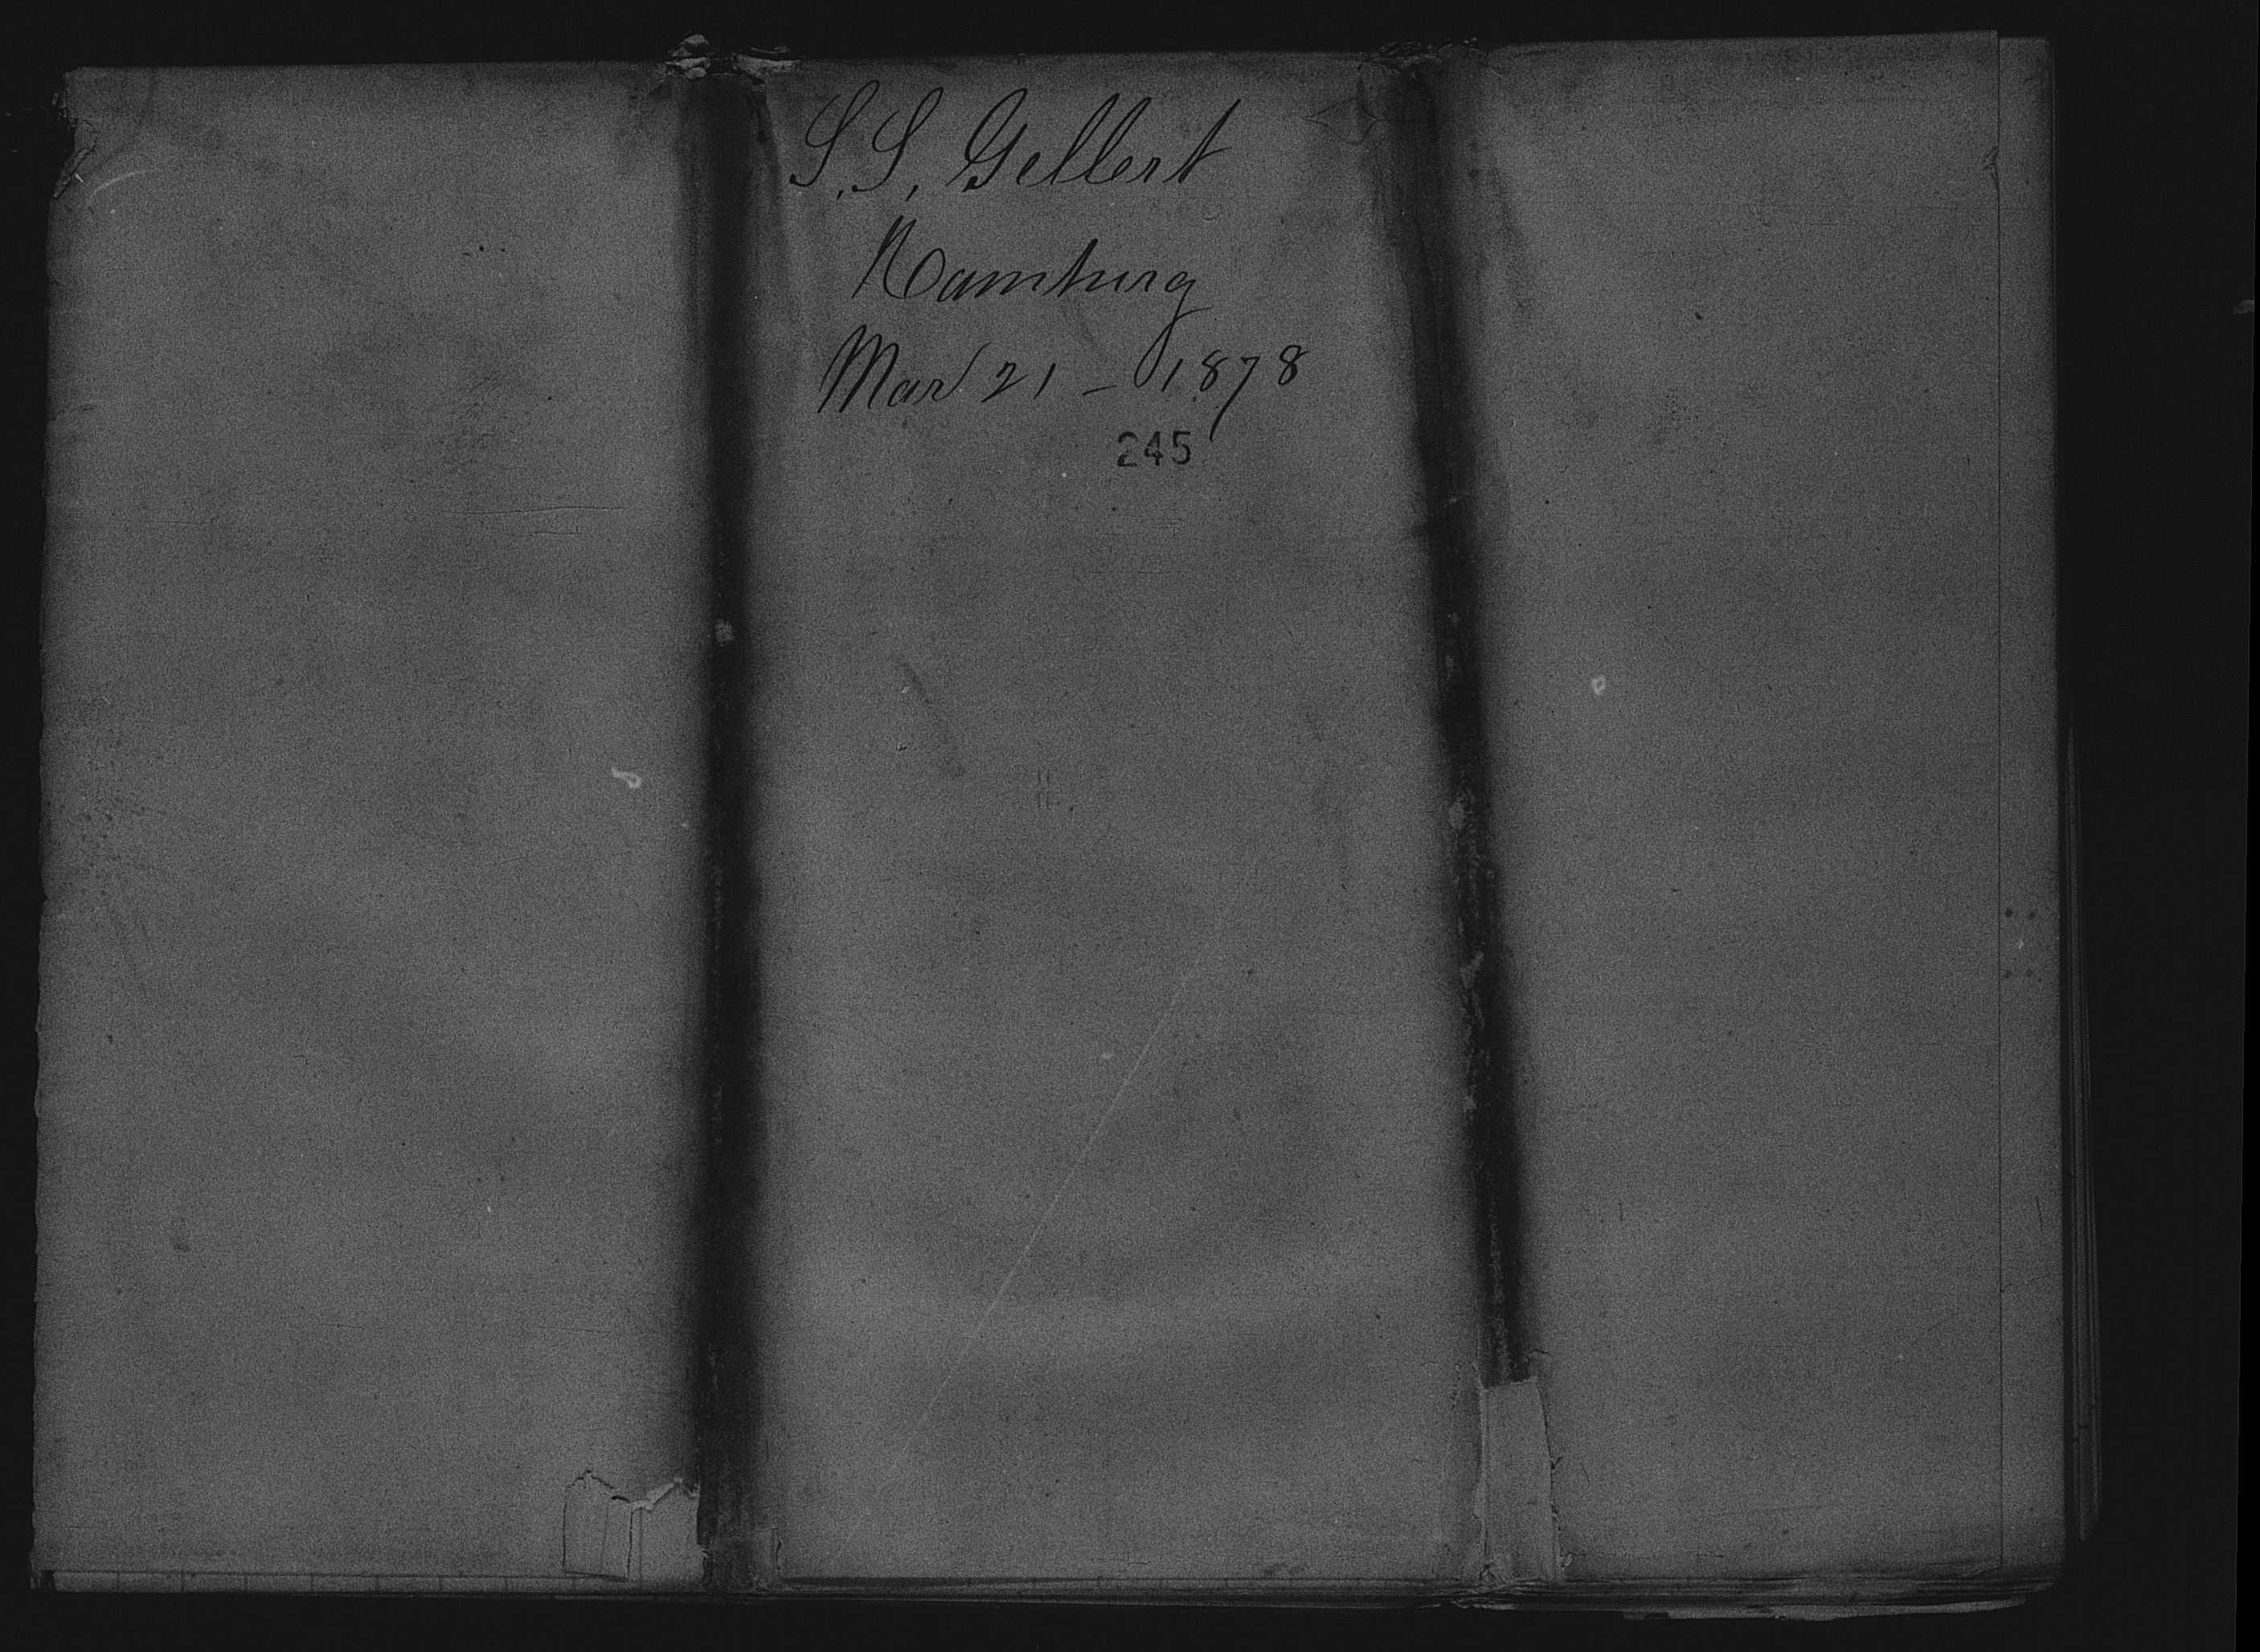 S.S. Gellert
Hamburg
Mar 21 - 1878
245